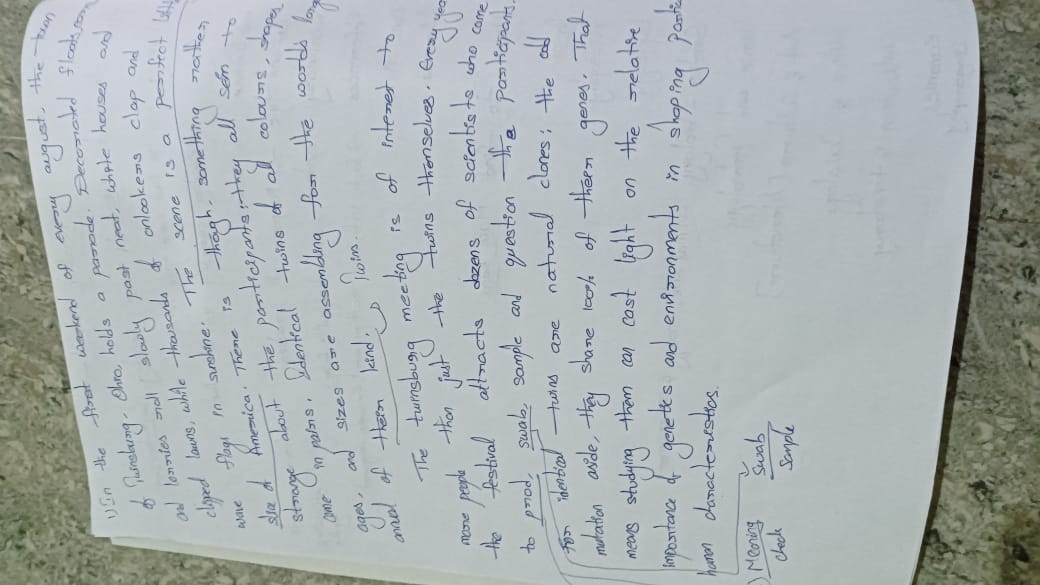 1) In the first weekend of every august, the town
of Twinsburg, Ohio, holds a parade. Decorated floats, cars
and lorries roll slowly past neat, white houses and
cliped lawns, while thousands of onlookers clap and
wave flags in sunshine. The scene is a perfect little
slice of America. There is though, something rather
strange about the participants, they all sem to
come in pairs. Identical twins of all colours, shapes,
ages, and sizes are assembling for the worlds
annal of their kind. Twins.
The twinsburg meeting is of interest to
more people than just the twins themselves. Every year
the festival attracts dozens of scientists who come
to prod, swab, sample and question the participants.
For identical twins are natural clones: the odd
mutation aside, they share 100% of their genes. That
means studying them can cast light on the relative
importance of genetics and environments in shaping
human characteristics.
Mening Swab
check Sample